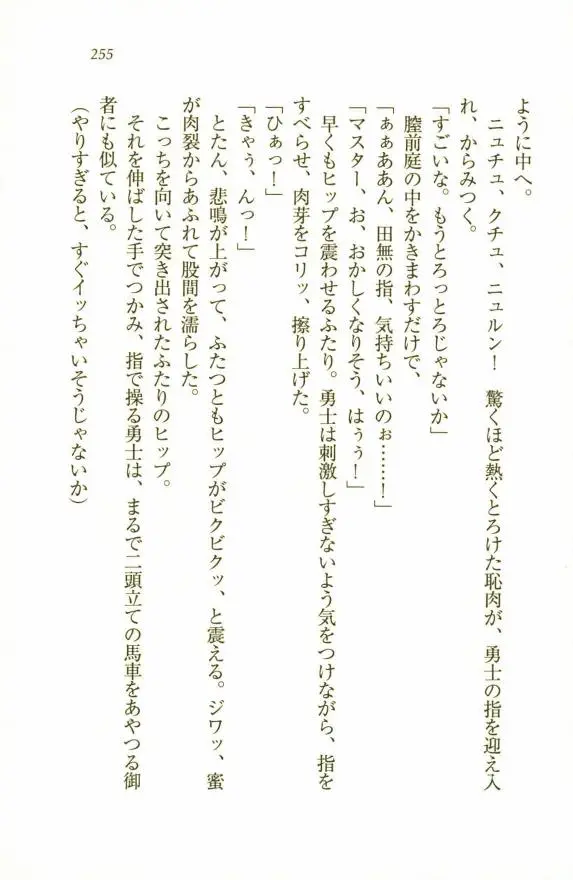 255
ように中へ。
ニュチュ、クチュ、ニュルン！　驚くほど熱くとろけた恥肉が、勇士の指を迎え入
れ、からみつく。
「すごいな。もうとろっとろじゃないか」
膣前庭の中をかきまわすだけで、
「ぁぁああん、田無の指、気持ちいいのぉ……！」
「マスター、お、おかしくなりそう、はぅぅ！」
早くもヒップを震わせるふたり。勇士は刺激しすぎないよう気をつけながら、指を
すべらせ、肉芽をコリッ、擦り上げた。
「ひぁっ！」
「きゃぅ、んっ！」
とたん、悲鳴が上がって、ふたつともヒップがビクビクッ、と震える。ジワッ、蜜
が肉裂からあふれて股間を濡らした。
こっちを向いて突き出されたふたりのヒップ。
それを伸ばした手でつかみ、指で操る勇士は、まるで二頭立ての馬車をあやつる御
者にも似ている。
（やりすぎると、すぐイッちゃいそうじゃないか）